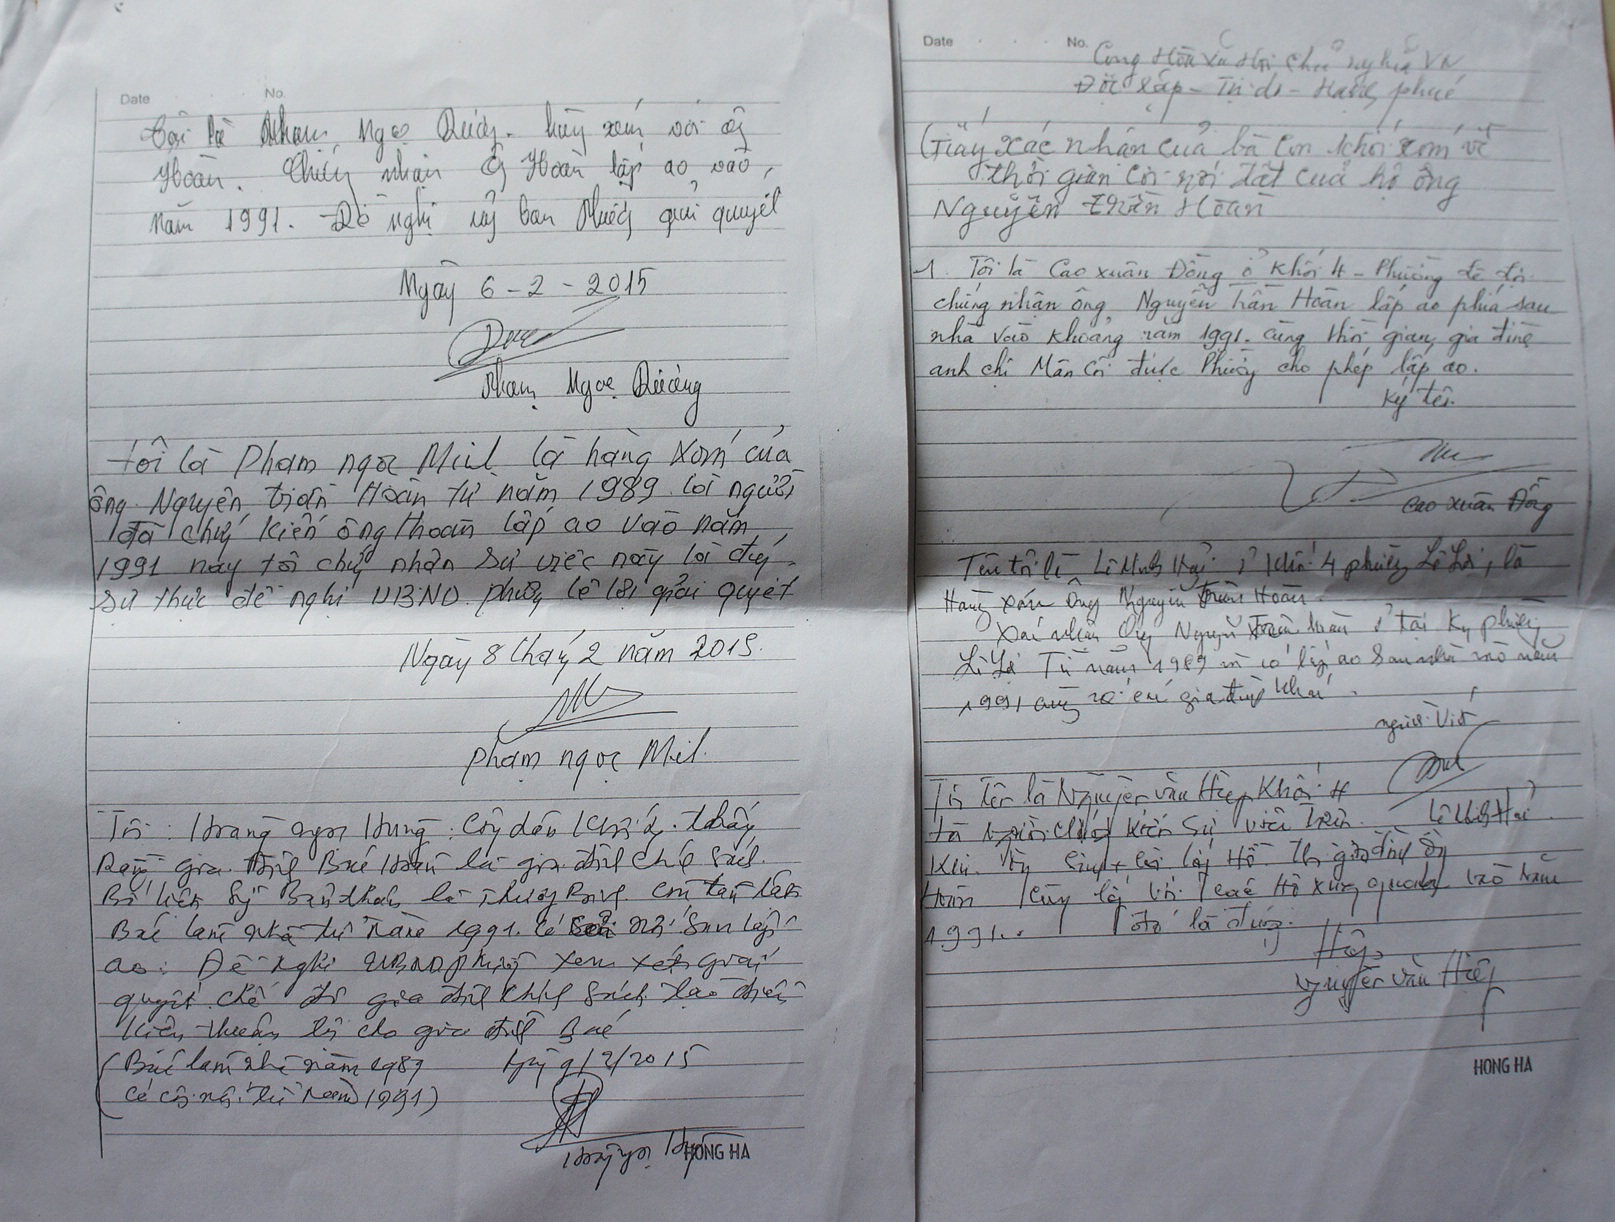 Date No.
Tôi là Phạm Ngọc Dương. hàng xóm với ông
Hoàn. Chứng nhận ông Hoàn lấp ao vào,
năm 1991. Đề nghị uỷ ban Phường giải quyết
Ngày 6-2-2015
Phạm Ngọc Dương
Tôi là Phạm ngọc Mil là hàng xóm của
ông Nguyễn trần Hoàn từ năm 1989 tôi người
đã chứng kiến ông Hoàn lấp ao vào năm
1991 này tôi chứng nhận sự việc này là đúng
sự thực đề nghị UBND phường lê lợi giải quyết
Ngày 8 tháng 2 năm 2015.
phạm ngọc Mil.
Tôi: Hoàng ngọc Hùng: Công dân Khối 4. thấy
rằng gia đình Bác Hoàn là gia đình chính sách.
Bố liên sỹ Bản thân là thương Binh
Bác làm nhà từ năm 1991. có nới sau lấp
ao: Đề nghị UBND phường xem xét giải
quyết chế độ gia đình chính sách tạo điều
kiện thuận lợi cho gia đình Bác
(Bác làm nhà năm 1989
có nới từ năm 1991)
9/2/2015
HONG HA
Date No.
Cộng Hòa Xã Hội Chủ nghĩa VN
Độc Lập - Tự do - Hạnh phúc
Giấy xác nhận của bà con khối xóm về
thời gian cơi nới đất của hộ ông
Nguyễn trần Hoàn
1. Tôi là Cao xuân Đồng ở Khối 4 - Phường lê lợi
chứng nhận ông Nguyễn Trần Hoàn lấp ao phía sau
nhà vào khoảng năm 1991. cùng thời gian gia đình
anh chị Mân Cơi được Phường cho phép lấp ao.
Ký tên
Cao Xuân Đồng
Tên tôi là Lê Minh Hải ở Khối 4 phường Lê Lợi, là
Hàng xóm ông Nguyễn Trần Hoàn.
Xác nhận ông Nguyễn Trần Hoàn ở tại phường
Lê Lợi Từ năm 1989 và có lấp ao sau nhà vào năm
1991 cùng gia đình khác.
người viết
Lê Minh Hải
Tôi Tên là Nguyễn văn Hiệp Khối 4
là người chứng kiến sự việc trên.
gia đình ông
Hoàn cùng lấp với các hộ xung quanh vào năm
1991. đó là đúng.
Hiệp
Nguyễn văn Hiệp
HONG HA